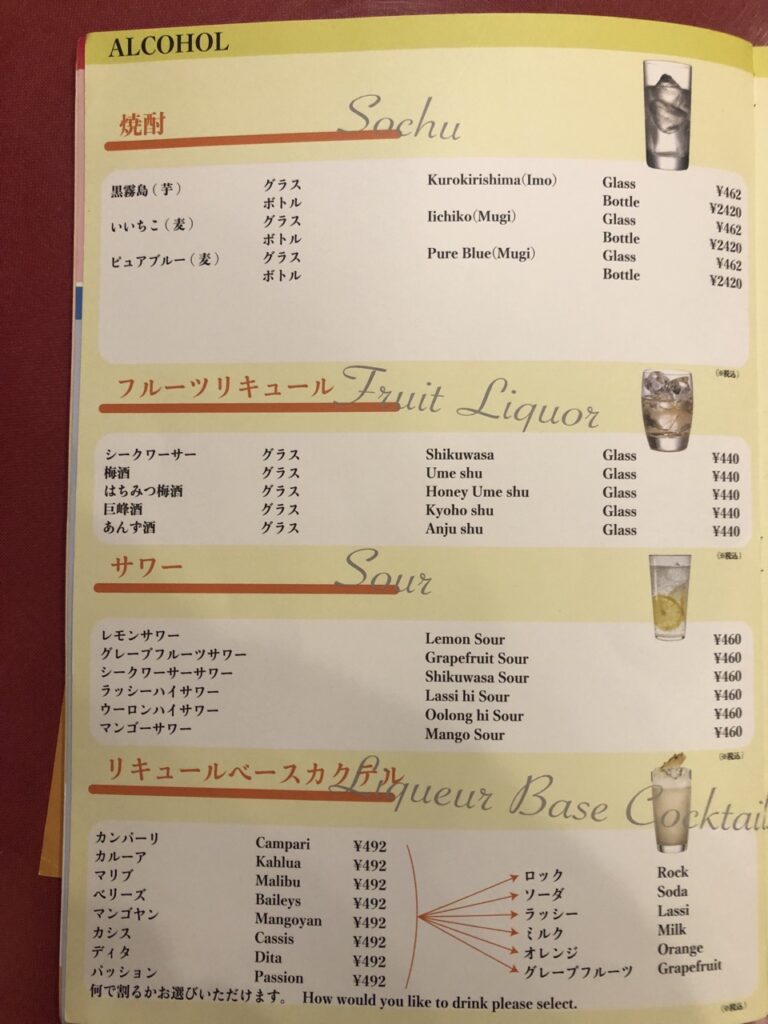 ALCOHOL
焼酎 Sochu
黒霧島(芋) グラス Kurokirishima(Imo) Glass ¥462
ボトル Bottle ¥2420
いいちこ(麦) グラス Iichiko(Mugi) Glass ¥462
ボトル Bottle ¥2420
ピュアブルー(麦) グラス Pure Blue(Mugi) Glass ¥462
ボトル Bottle ¥2420
(※税込)
フルーツリキュール Fruit Liquor
シークワーサー グラス Shikuwasa Glass ¥440
梅酒 グラス Ume shu Glass ¥440
はちみつ梅酒 グラス Honey Ume shu Glass ¥440
巨峰酒 グラス Kyoho shu Glass ¥440
あんず酒 グラス Anju shu Glass ¥440
(※税込)
サワー Sour
レモンサワー Lemon Sour ¥460
グレープフルーツサワー Grapefruit Sour ¥460
シークワーサーサワー Shikuwasa Sour ¥460
ラッシーハイサワー Lassi hi Sour ¥460
ウーロンハイサワー Oolong hi Sour ¥460
マンゴーサワー Mango Sour ¥460
(※税込)
リキュールベースカクテル Liqueur Base Cocktail
カンパーリ Campari ¥492
カルーア Kahlua ¥492
マリブ Malibu ¥492
ベリーズ Baileys ¥492
マンゴヤン Mangoyan ¥492
カシス Cassis ¥492
ディタ Dita ¥492
パッション Passion ¥492
ロック Rock
ソーダ Soda
ラッシー Lassi
ミルク Milk
オレンジ Orange
グレープフルーツ Grapefruit
何で割るかお選びいただけます。 How would you like to drink please select.
(※税込)